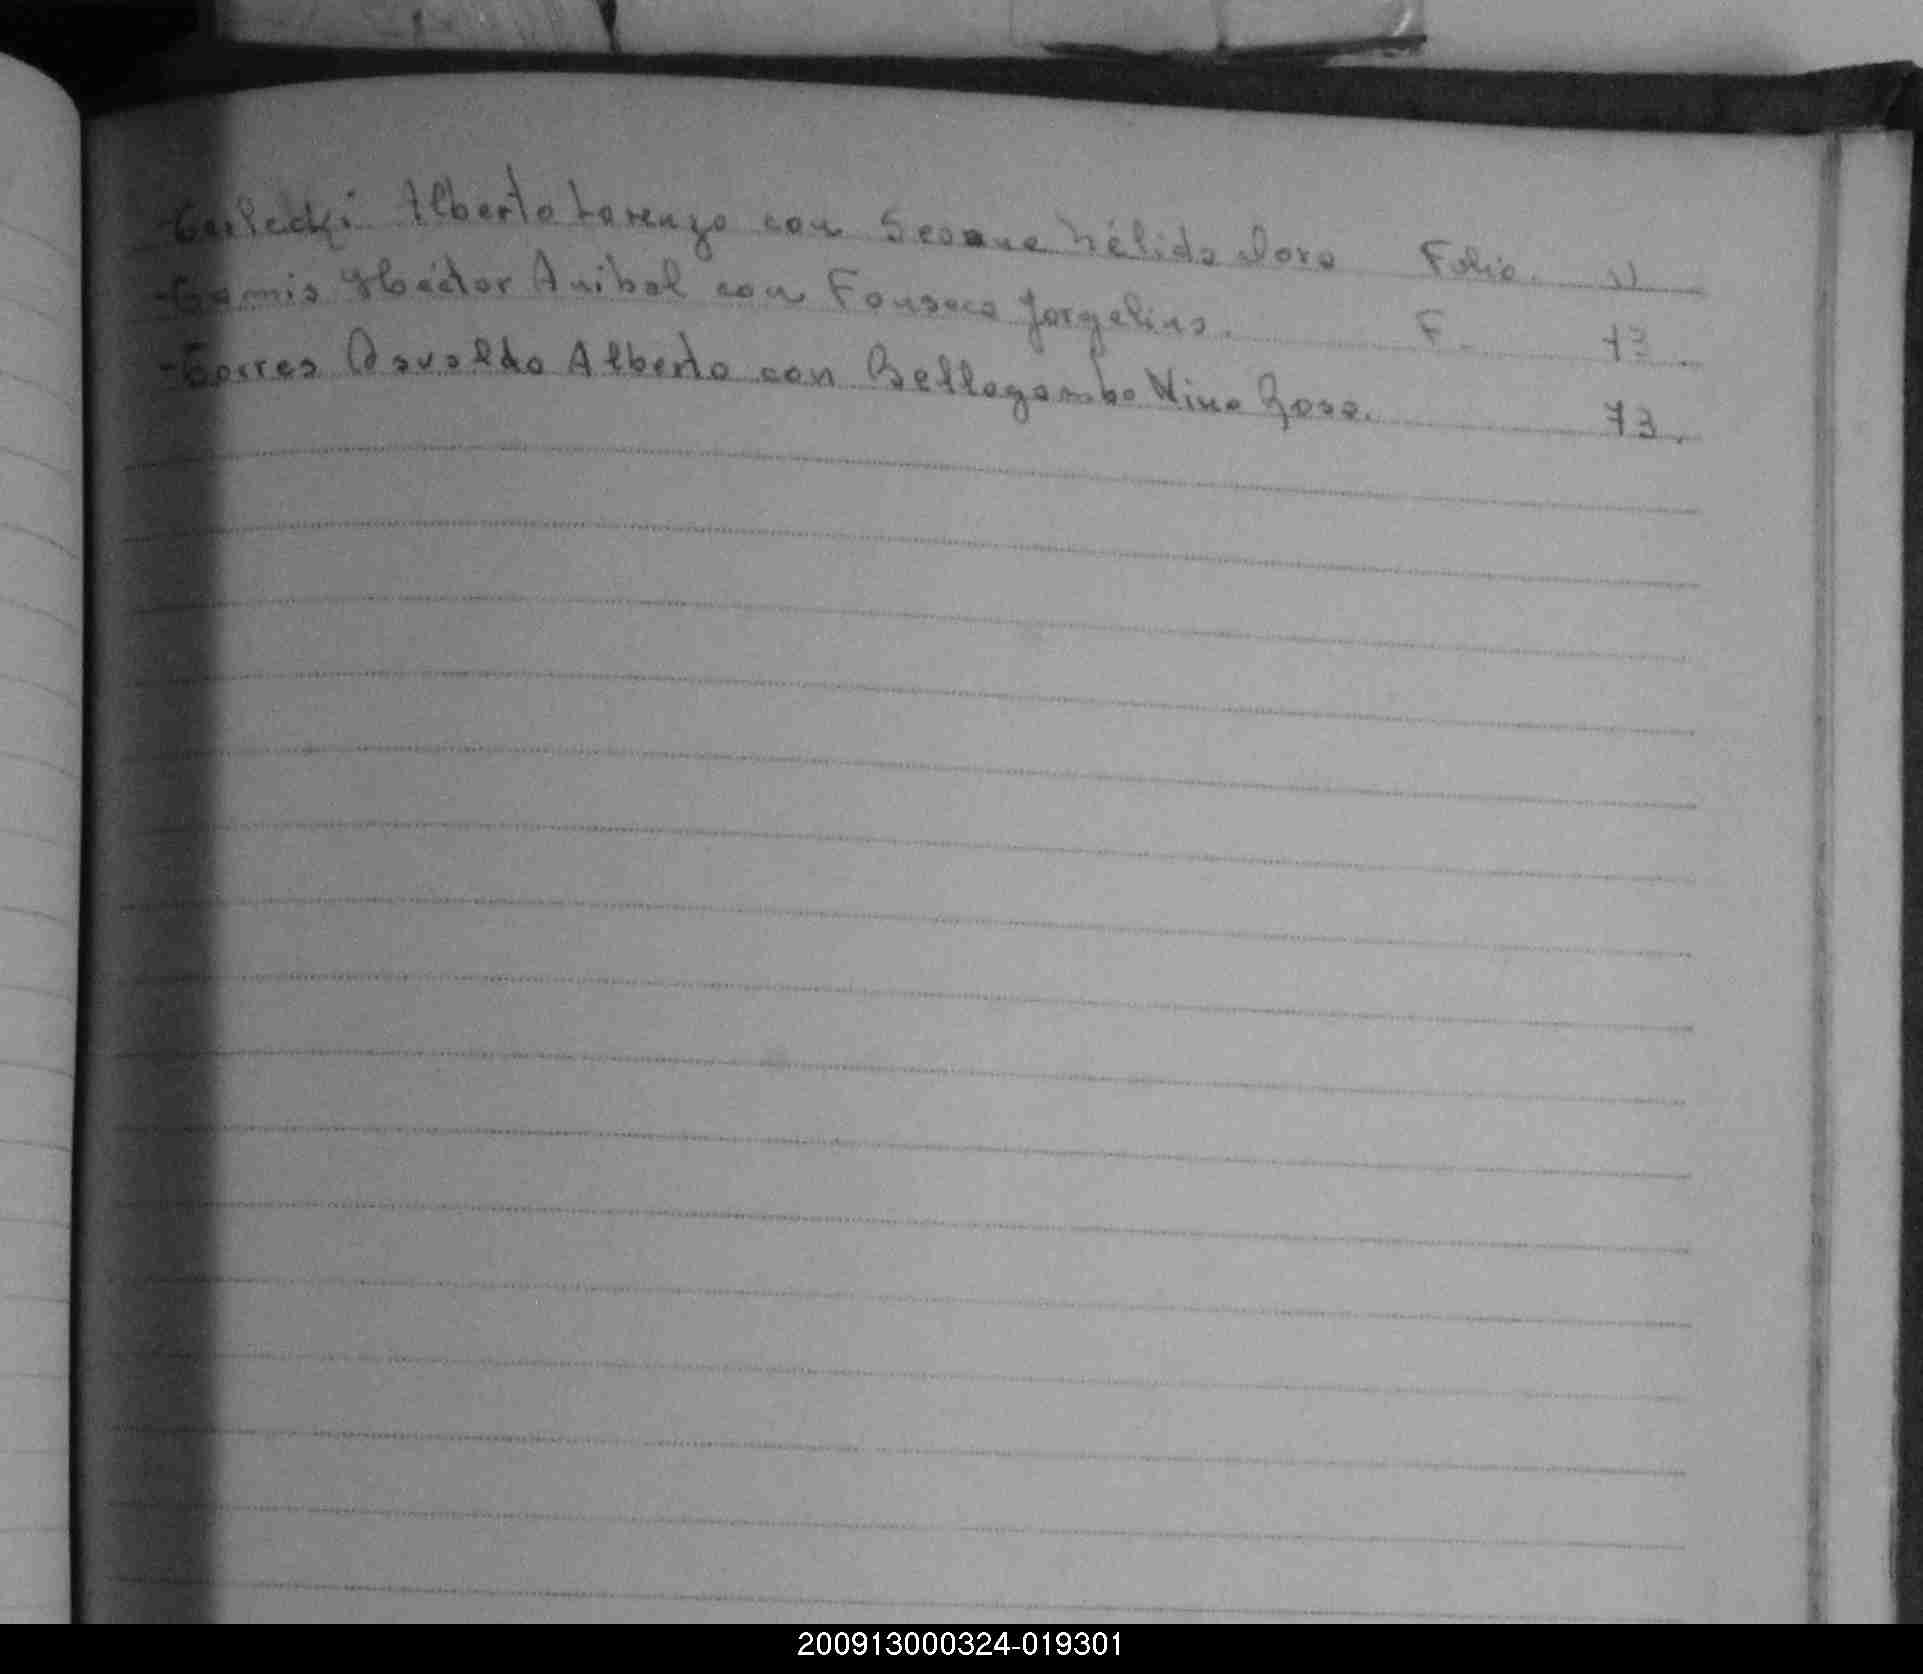 - Terlecki Alberto Lorenzo con Seoane Nélida Dora Folio. 11
- Tomis Héctor Anibal con Fonseca Jorgelina. F. 13.
- Torres Osvaldo Alberto con Bellogamba Nina Rosa. 73.
200913000324-019301